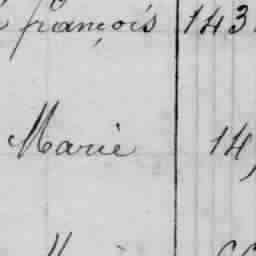 françois 143
Marie 14,